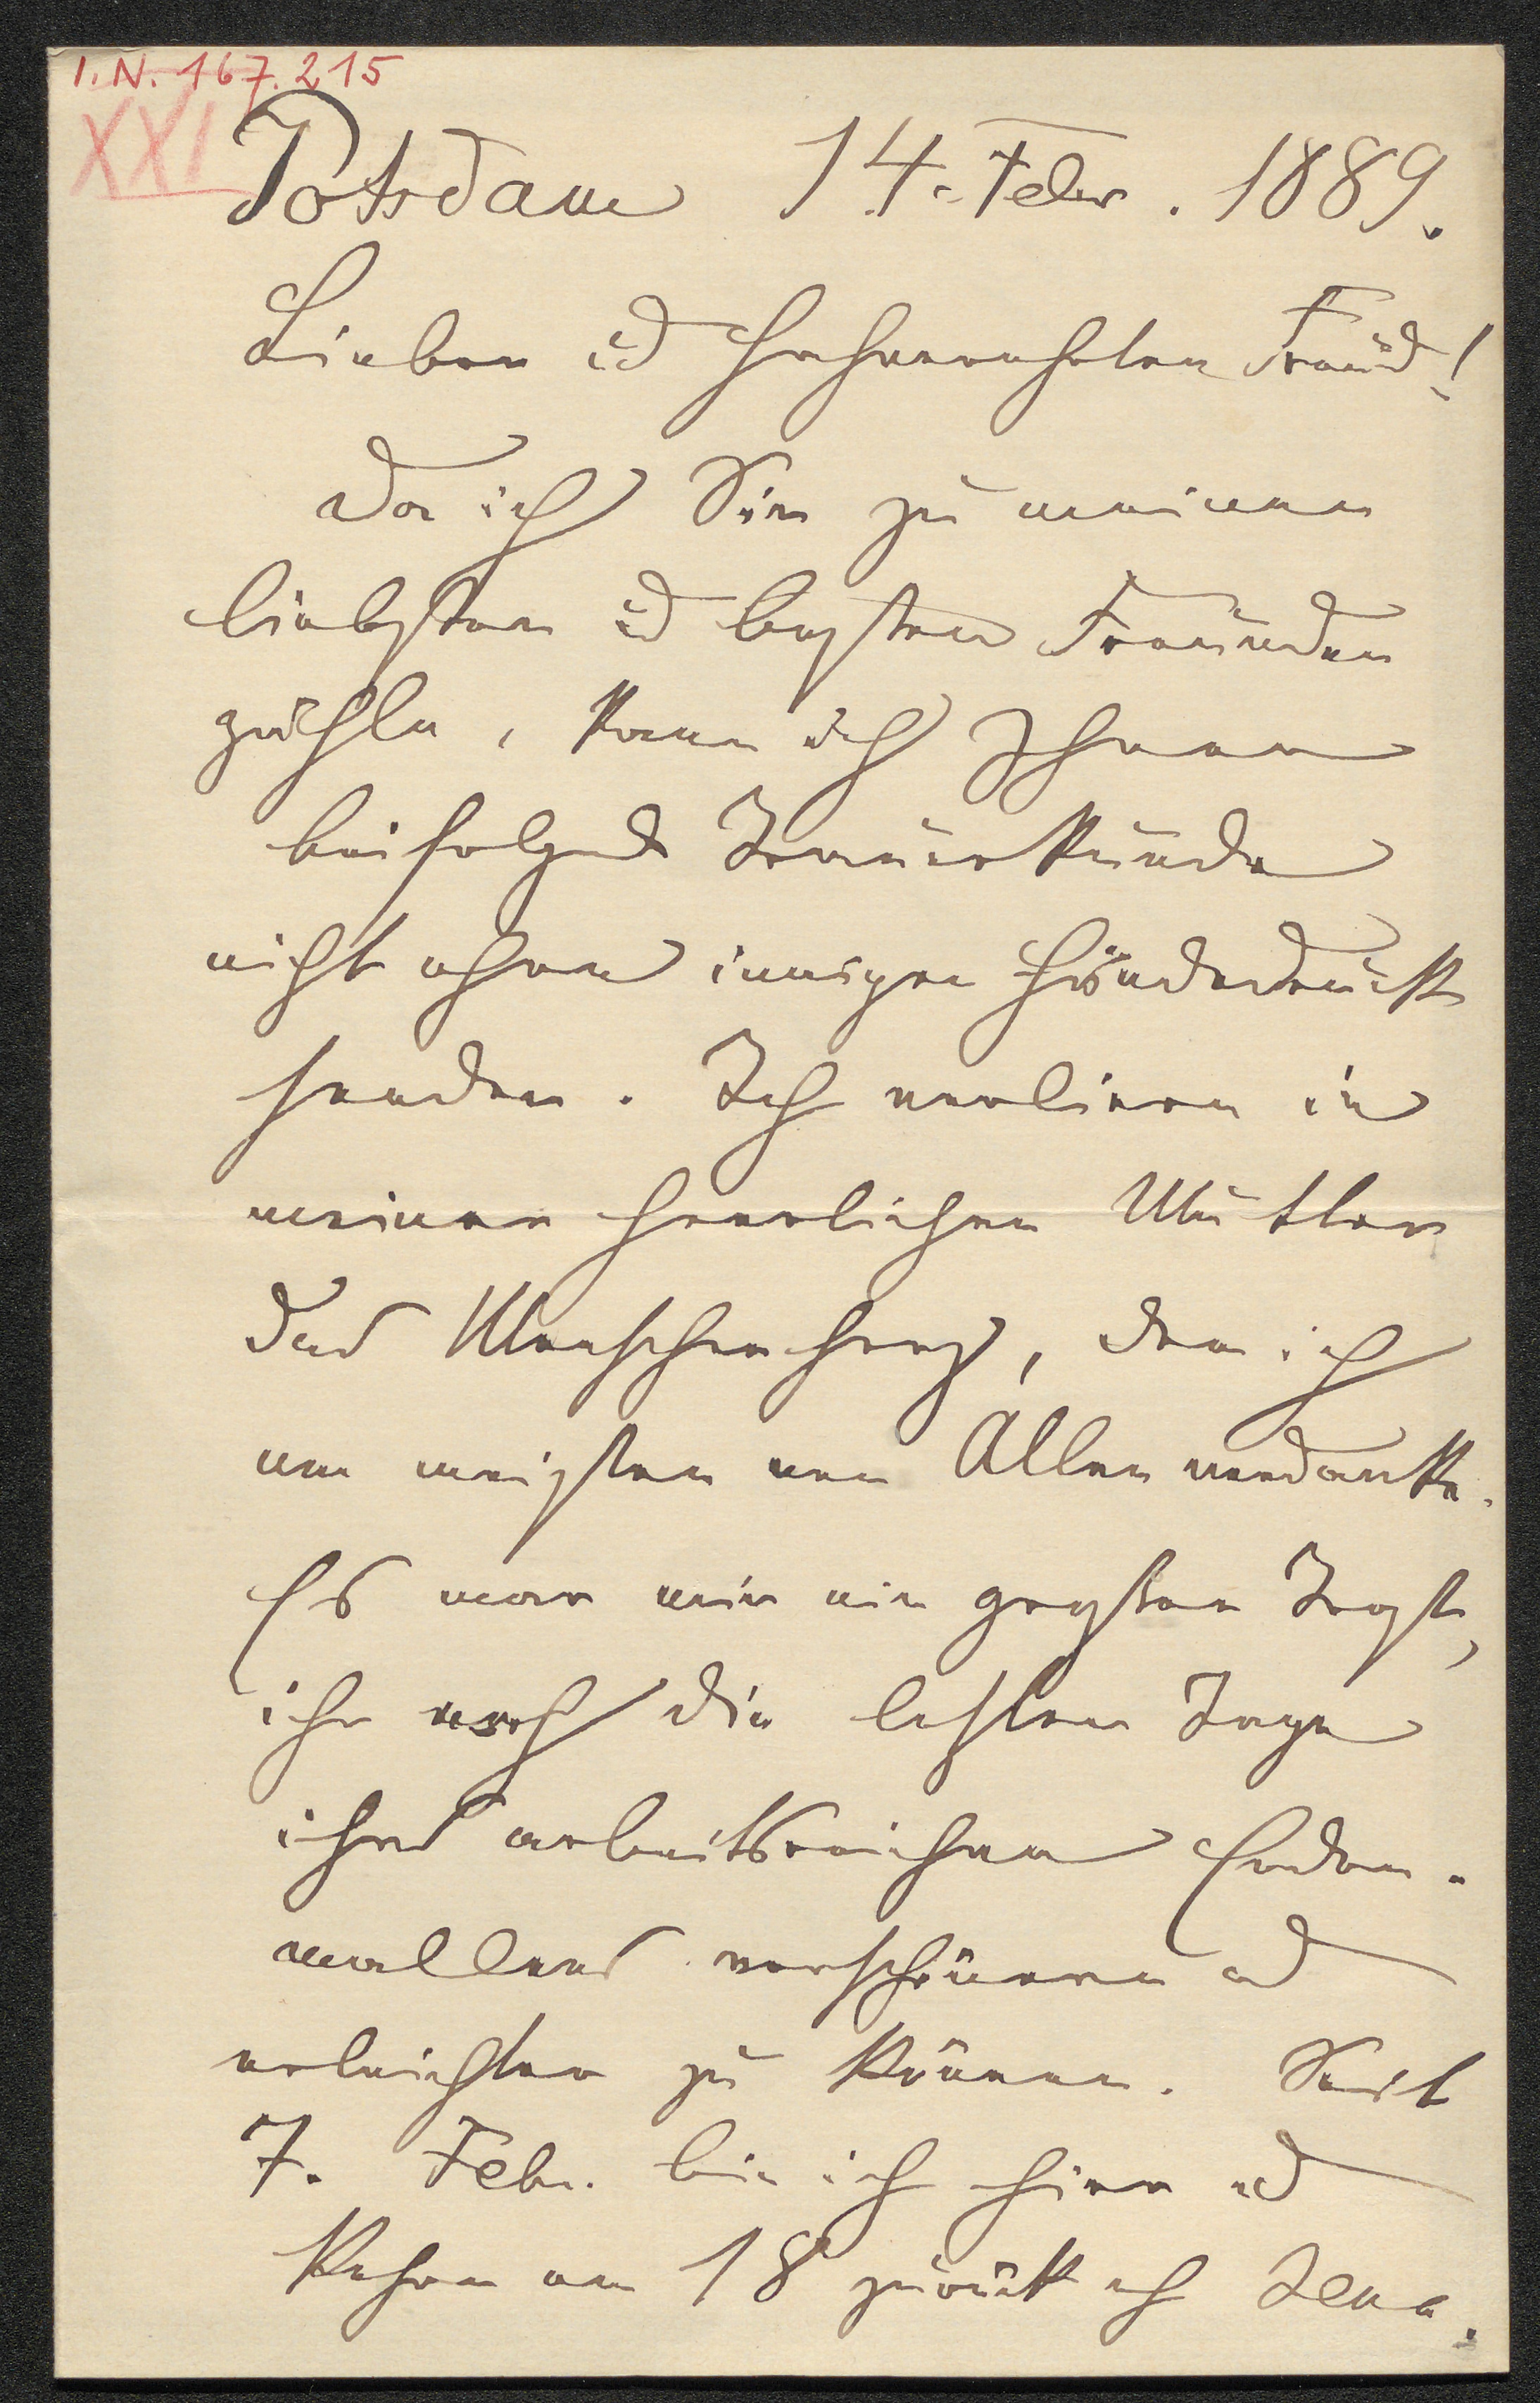 I. N. 167.215
XXI
Potsdam 14. Febr. 1889.
Lieber ud hochverehrter Freud!
Da ich Sie zu meinen
liebsten ud besten Freunden
zähle, kann ich Ihnen
beifolgende Trauerkunde
nicht ohne innigen Händedruck
senden. Ich verliere in
meiner herrlichen Mutter
das Menschenherz, dem ich
am meisten von Allen verdanke.
Es war mir ein großer Trost,
ihr noch die letzten Tage
ihres arbeitsreichen Erden-
wallens verschönern ud
erleichtern zu können. Seit
7. Febr. bin ich hier ud
kehre am 18 zurück nach Jena.